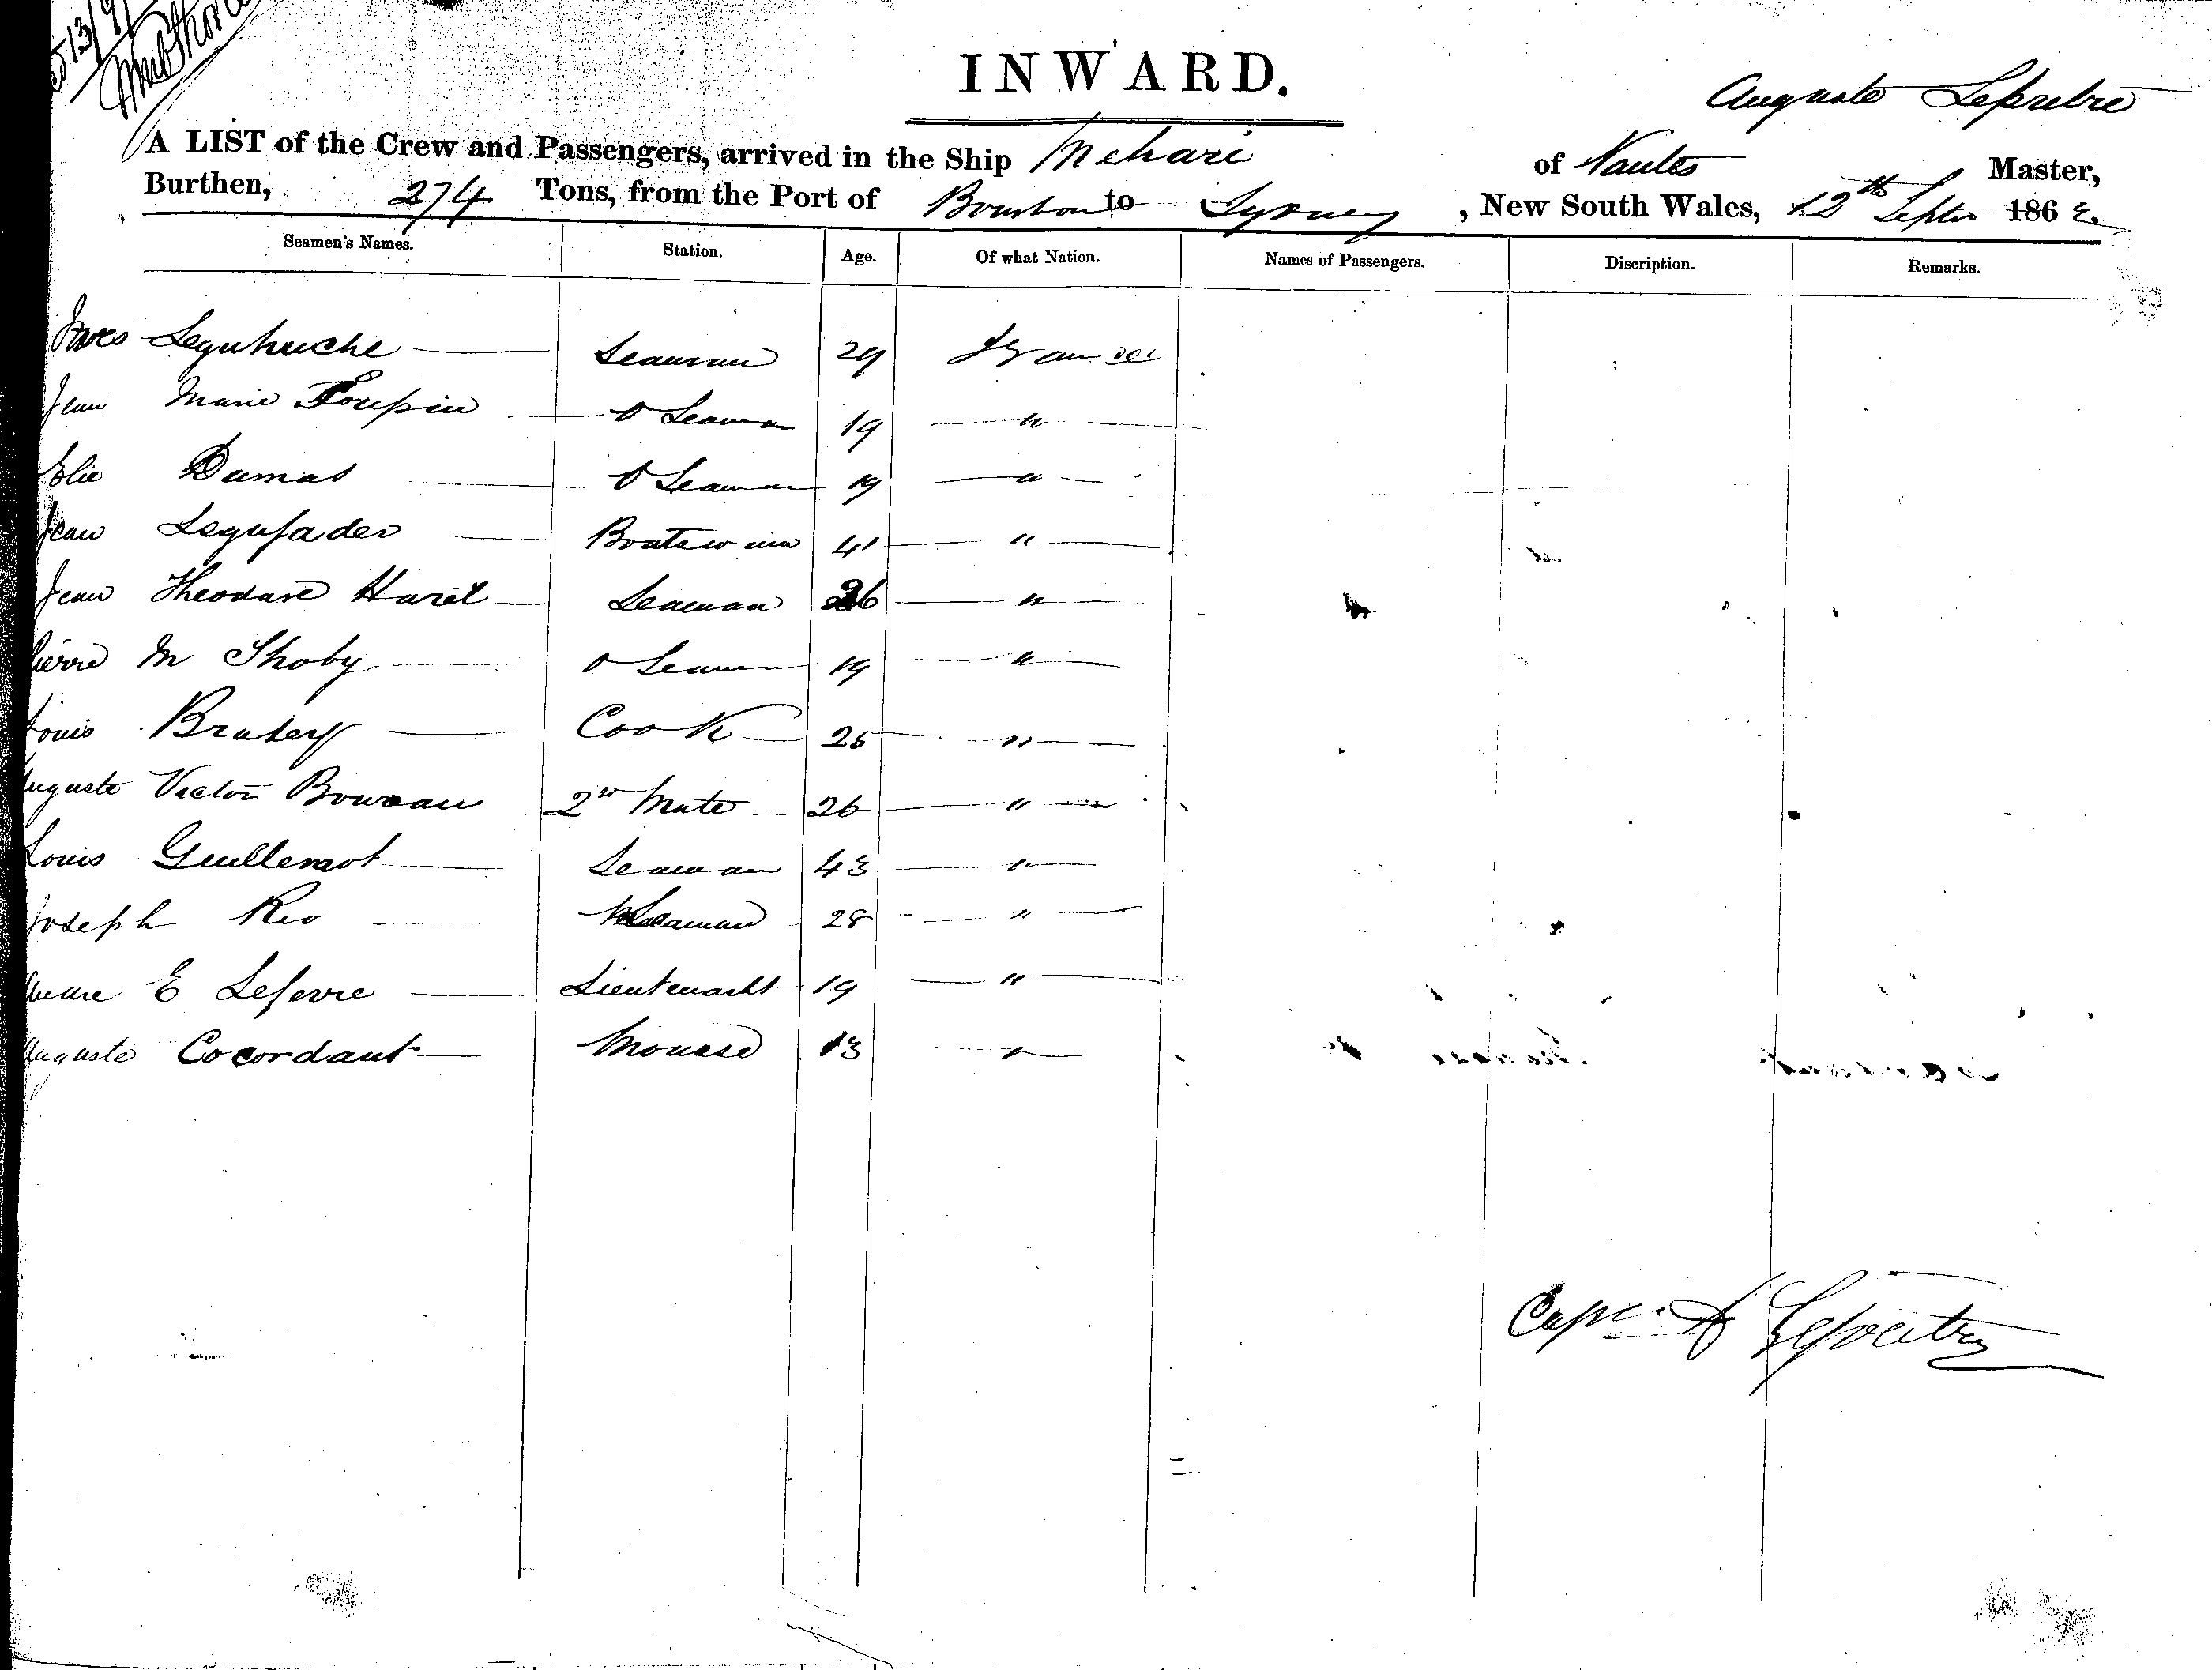 13/9/
INWARD.
Auguste Lepretre
A LIST of the Crew and Passengers, arrived in the Ship Mehari of Nantes Master,
Burthen, 274 Tons, from the Port of Bourbon to Sydney, New South Wales, 12th Septr 1862
Seamen's Names. Station. Age. Of what Nation. Names of Passengers. Discription. Remarks.
Seaman 29 France
Jean Marie Toupin O Seaman 19 "
Elie Dumas O Seaman 19 "
Jean Boatswain 41 "
Jean Theodore Harel Seaman 26 "
Pierre M Thoby O Seaman 19 "
Louis Cook 25 "
Auguste Victor 2nd Mate 26 "
Louis Guillemot Seaman 43 "
Joseph Rio Seaman 28 "
E Lefevre 19 "
Auguste Cocordant Mousse 13 "
Capn A Lepretre